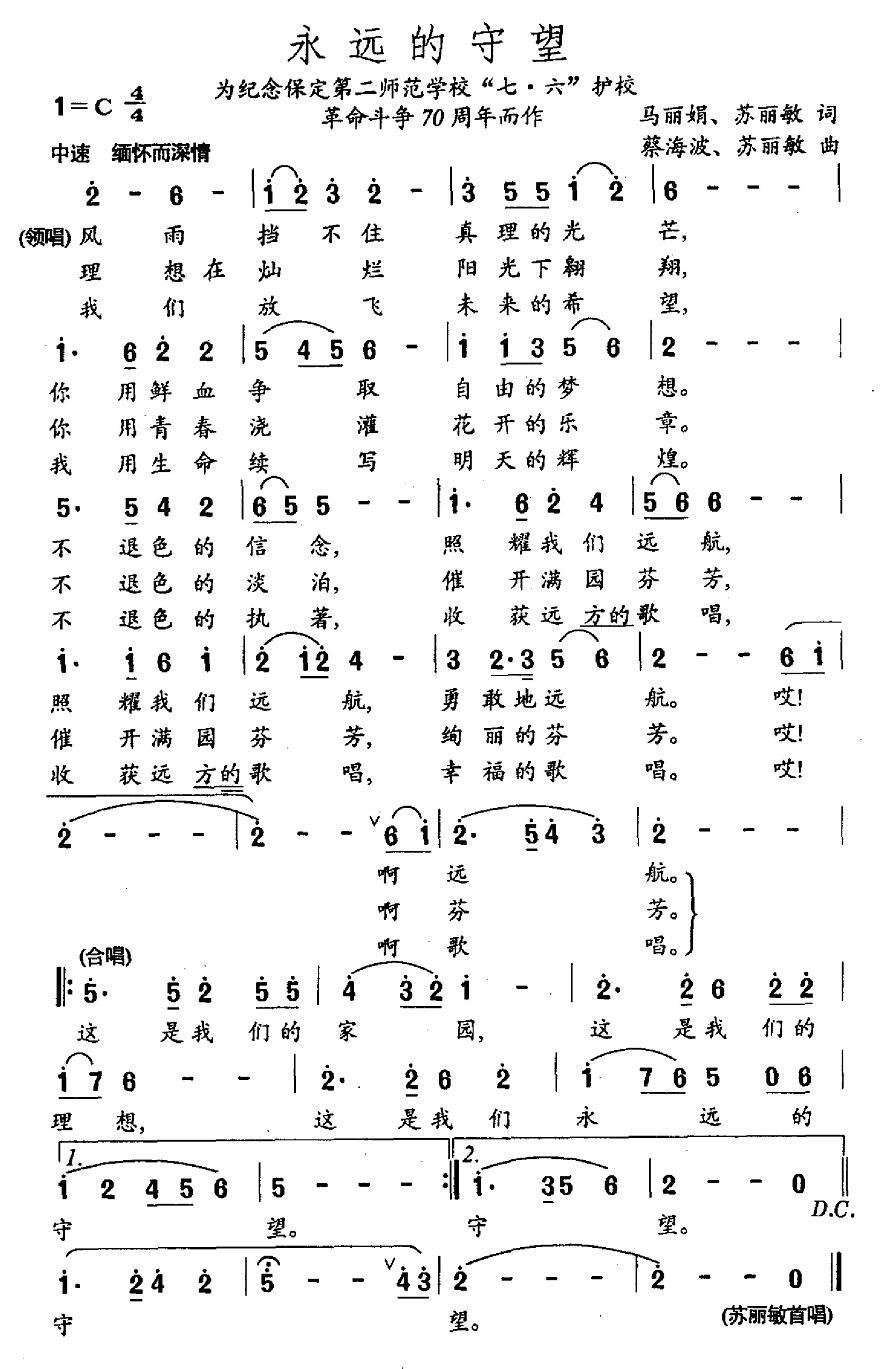 永远的守望
为纪念保定第二师范学校“七·六”护校
革命斗争70周年而作
1=C 4/4
马丽娟、苏丽敏 词
蔡海波、苏丽敏 曲
中速 缅怀而深情
2̇ - 6 - | 1̇ 2̇ 3̇ 2̇ - | 3̇ 5 5 1̇ 2̇ | 6 - - - |
(领唱)风 雨 挡 不 住 真 理 的 光 芒,
理 想 在 灿 烂 阳 光 下 翱 翔,
我 们 放 飞 未 来 的 希 望,
1̇· 6 2̇ 2 | 5 4 5 6 - | 1̇ 1̇ 3 5 6 | 2 - - - |
你 用 鲜 血 争 取 自 由 的 梦 想。
你 用 青 春 浇 灌 花 开 的 乐 章。
我 用 生 命 续 写 明 天 的 辉 煌。
5· 5 4 2 | 6 5 5 - - | 1̇· 6 2̇ 4 | 5 6 6 - - |
不 退 色 的 信 念, 照 耀 我 们 远 航,
不 退 色 的 淡 泊, 催 开 满 园 芬 芳,
不 退 色 的 执 著, 收 获 远 方的 歌 唱,
1̇· 1̇ 6 1̇ | 2̇ 1̇ 2̇ 4 - | 3 2·3 5 6 | 2 - - 6 1̇ |
照 耀 我 们 远 航, 勇 敢 地 远 航。 哎!
催 开 满 园 芬 芳, 绚 丽 的 芬 芳。 哎!
收 获 远 方的 歌 唱, 幸 福 的 歌 唱。 哎!
2̇ - - - | 2̇ - - ∨ 6 1̇ | 2̇· 5̇ 4̇ 3̇ | 2̇ - - - |
啊 远 航。
啊 芬 芳。
啊 歌 唱。
(合唱)
‖: 5̇· 5̇ 2̇ 5̇ 5̇ | 4̇ 3̇ 2̇ 1̇ - | 2̇· 2̇ 6 2̇ 2̇ |
这 是 我 们 的 家 园, 这 是 我 们 的
1̇ 7 6 - - | 2̇· 2̇ 6 2̇ | 1̇ 7 6 5 0 6 |
理 想, 这 是 我 们 永 远 的
1. 2.
1̇ 2 4 5 6 | 5 - - - :‖ 1̇· 3 5 6 | 2 - - 0 ‖
守 望。 守 望。 D.C.
1̇· 2̇ 4̇ 2̇ | 5̇ - - ∨ 4̇ 3̇ | 2̇ - - - | 2̇ - - 0 ‖
守 望。 (苏丽敏首唱)